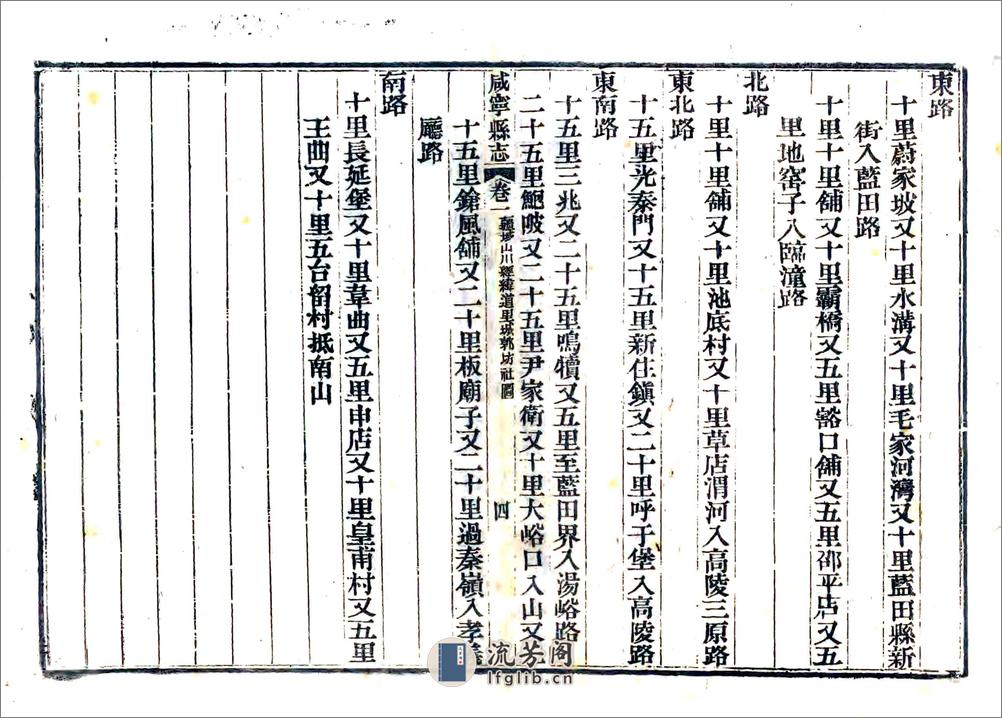 東路
十里蔚家坡又十里水溝又十里毛家河灣又十里藍田縣新
街入藍田路
十里十里舖又十里霸橋又五里豁口舖又五里邵平店又五
里地窑子入臨潼路
北路
十里十里舖又十里池底村又十里草店渭河入高陵三原路
東北路
十五里光泰門又十五里新住鎮又二十里呼于堡入高陵路
東南路
十五里三兆又二十五里鳴犢又五里至藍田界入湯峪路
二十五里鮑陂又二十五里尹家衛又十里大峪口入山又
咸寧縣志
卷一
疆域山川經緯道里城郭坊社圖
四
十五里鎗風舖又二十里板廟子又二十里過秦嶺入孝義
廳路
南路
十里長延堡又十里韋曲又五里申店又十里皇甫村又五里
王曲又十里五台留村抵南山
流芳阁
lfglib.cn